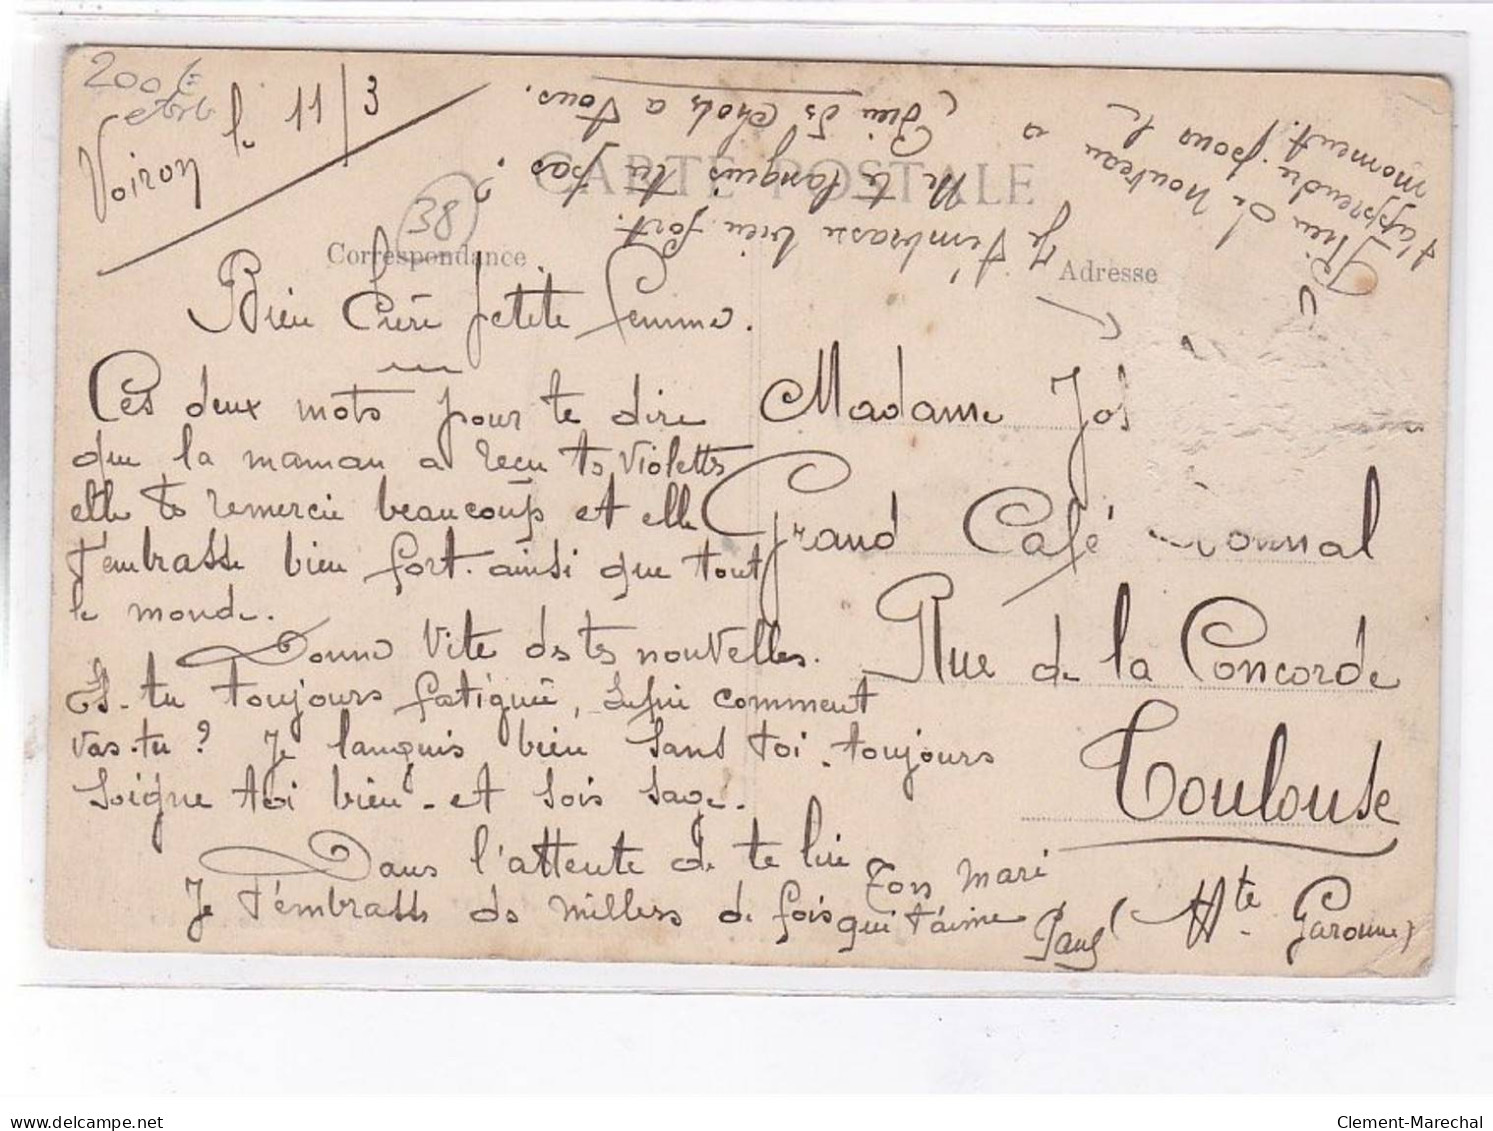 200 f
Voiron le 11/3
CARTE POSTALE
38
Correspondance
Adresse
Bien Chère petite femme.
Ces deux mots pour te dire
que la maman a reçu tes violettes
elle te remercie beaucoup et elle
t'embrasse bien fort. ainsi que tout
le monde.
Donne vite de tes nouvelles.
Es-tu toujours fatiguée, comment
vas-tu? Je languis bien sans toi. toujours
Soigne toi bien - et sois sage.
Dans l'attente de te lire
Je t'embrasse des milliers de fois
Ton mari
qui t'aime
Paul
Madame Jos
Grand Café
Rue de la Concorde
Toulouse
(Hte Garonne)
Rien de nouveau à
t'apprendre pour le
moment.
Je t'embrasse bien fort.
Me te languis tu pas ?
(Bien des choses a tous.
delcampe.net
Clement-Marechal